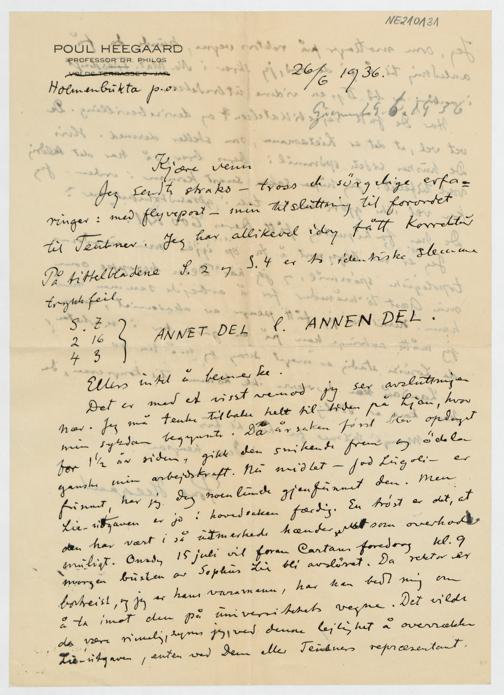 NE210A31
POUL HEEGAARD
PROFESSOR DR. PHILOS
VOLDS TERRASSE 5 JAR
Holmenbukta p.o.
26/6 1936.
29.6.1936
Kjære venn
Jeg sendte straks – tross de sörgelige erfa=
ringer: med flyvepost – min tilslutning til forordet
til Teubner. Jeg har allikevel idag fått korrektur
På tittelbladene S. 2 og S. 4 er to identiske slemme
trykkfeil
S. Z
2 16
4 3
ANNET DEL l. ANNEN DEL.
Ellers intet å bemerke.
Det er med et visst vemod jeg ser avslutningen
nær. Jeg må tenke tilbake helt til tiden på Ljan, hvor
min sykdom begynte. Da årsaken först blev opdaget
for 1½ år siden, gikk den snikende frem og ödela
ganske min arbejdskraft. Nå midlet – Jod Lugoli – er
funnet, har jeg dog noenlunde gjenfunnet den. Men
Lie-utgaven er jo i hovedsaken færdig. En tröst er det, at
den har vært i så utmerkede hænder, som overhodet
muligt. Onsdag 15 juli vil foran Cartans foredrag kl. 9
morgen busten av Sophus Lie bli avslöret. Da rektor er
bortreist, og jeg er hans varamann, har han bedt mig om
å ta imot den på universitetets vegne. Det vilde
da være rimelig, synes jeg, ved denne lejlighet å overrække
Lie-utgaven, enten ved Dem eller Teubners repræsentant.